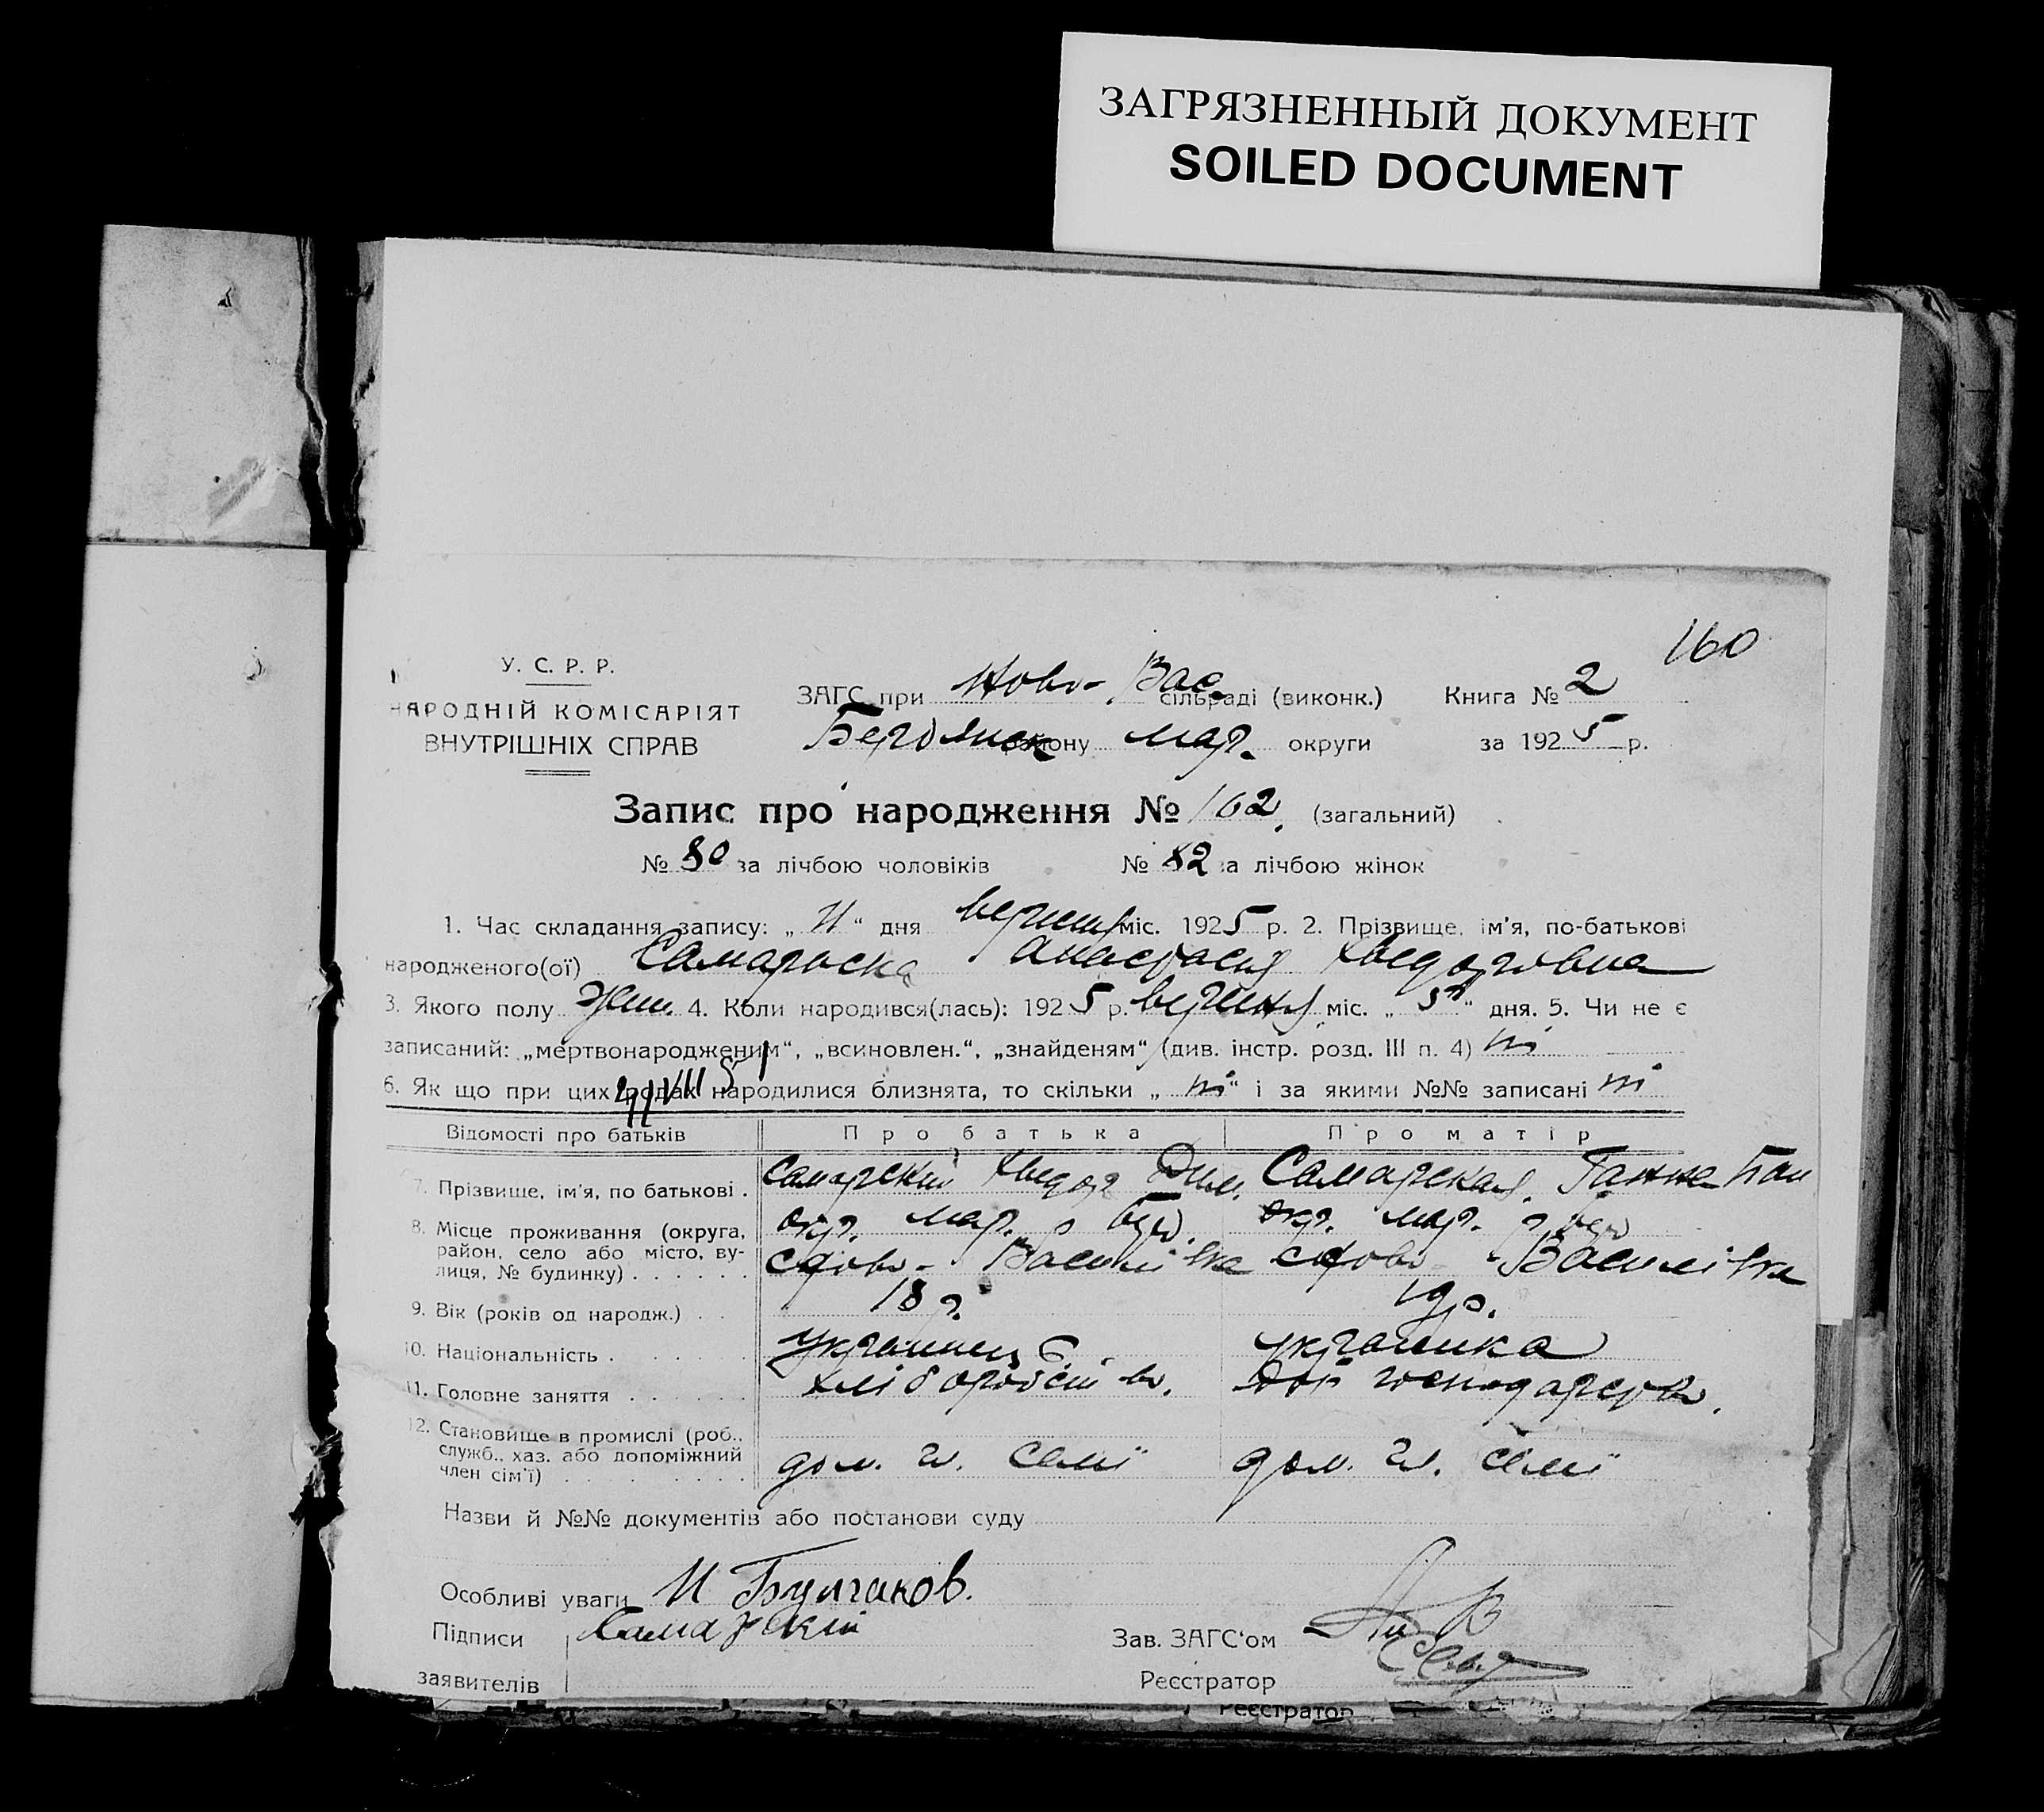 ЗАГРЯЗНЕННЫЙ ДОКУМЕНТ
SOILED DOCUMENT
160
У. С. Р. Р.
НАРОДНІЙ КОМІСАРІЯТ
ВНУТРІШНІХ СПРАВ
ЗАГС при Ново-Вас. сільраді (виконк.) Книга № 2
Бердянск району мар. округи за 1925 р.
Запис про народження № 162. (загальний)
№ 80 за лічбою чоловіків № 82 за лічбою жінок
1. Час складання запису: „ 11 “ дня міс. 1925 р. 2. Прізвище, ім'я, по-батькові
народженого(ої) Самарська Анастасія Хведоровна
3. Якого полу жін. 4. Коли народився(лась): 1925 р. міс. „ 5 “ дня. 5. Чи не є
записаний: „мертвонародженим“, „всиновлен.“, „знайденям“ (див. інстр. розд. III п. 4) ні
6. Як що при цих родах народилися близнята, то скільки „ ні “ і за якими №№ записані ні
Відомості про батьків Про батька Про матір
7. Прізвище, ім'я, по батькові . Самарский Хведор Дим. Самарская Ганна Пан
8. Місце проживання (округа, район, село або місто, вулиця, № будинку) . . . . . . окр. мар. р окр. мар. р
с Ново-Василівка с Ново-Василівка
9. Вік (років од народж.) . . 18 р. 19 р.
10. Національність . . . . . . українець українка
11. Головне заняття . . . . . . хліборобство. господарство.
12. Становище в промислі (роб.,
служб., хаз. або допоміжний
член сім'ї) . . . . . . . . дом. чл. семї дом. чл. семї
Назви й №№ документів або постанови суду
Особливі уваги И Булгаков.
Підписи Самарский
заявителів
Зав. ЗАГС'ом
Реєстратор
Реєстратор